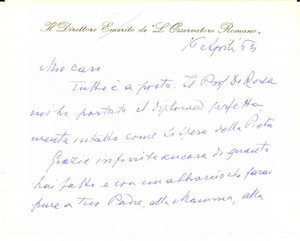 Il Direttore Emerito de "L'Osservatore Romano"
16 Aprile 65
Mio caro
Tutto è a posto. Il Prof. De Rosa
mi ha portato il diploma perfetta
mente intatto come
Grazie infinite ancora di quanto
hai fatto e con un abbraccio che farai
pure a tuo Padre, alla Mamma, alla